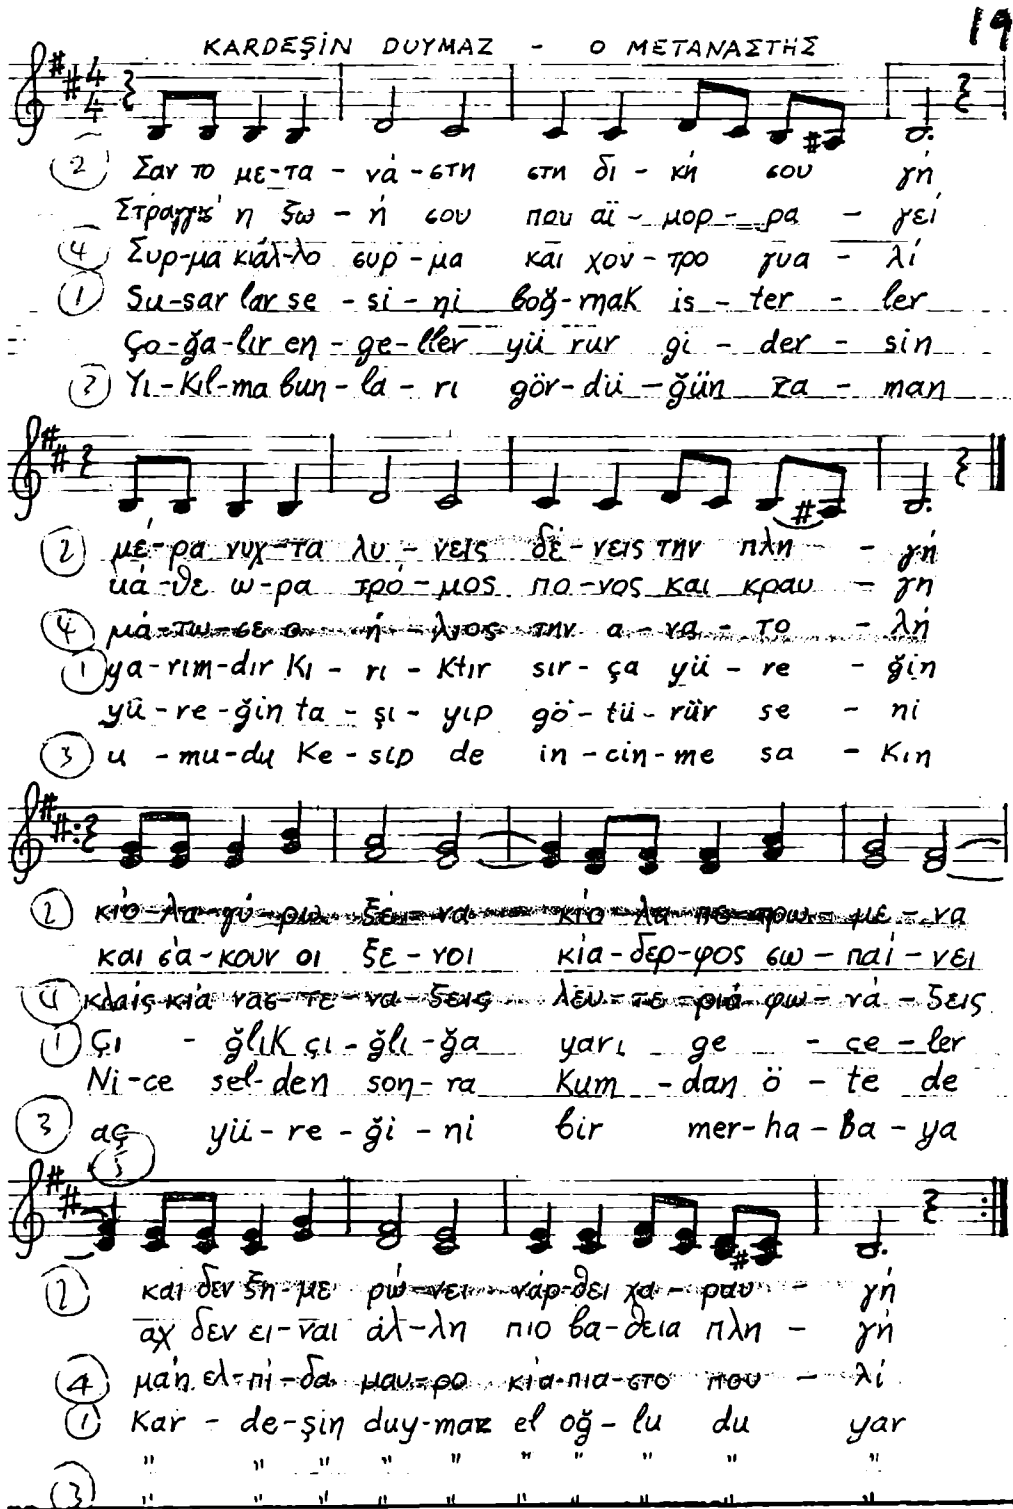 19
KARDEŞİN DUYMAZ - Ο ΜΕΤΑΝΑΣΤΗΣ
4
4
(2) Σαν το με-τα - νά-στη στη δι - κή σου γή
Στραγγίζ' η ζω - ή σου που αϊ - μορ - ρα - γεί
(4) Συρ-μα κιάλ-λο συρ-μα και χον-τρο γυα - λί
(1) Su-sar lar se - si-ni boğ-mak is - ter - ler
Ço-ğa-lır en-ge-ller yü rür gi - der - sin
(3) Yı-kıl-ma bun-la-rı gör-dü-ğün za - man
(2) μέ-ρα νυχ-τα λυ-νεις δέ-νεις την πλη - γή
κά-θε ω-ρα τρό-μος πο-νος και κραυ - γη
(4) μά-τω-σε ο ή-λιος την α-να-το - λή
(1) ya-rım-dır kı-rı-ktır sır-ça yü-re - ğin
yü-re-ğin ta-şı-yıp gö-tü-rür se - ni
(3) u-mu-du ke-sip de in-cin-me sa - kın
(2) κιό-λα γύ-ρω ξέ-να κιό-λα πε-τρω-με-να
και σά-κουν οι ξε-νοι κια-δερ-φος σω-παί-νει
(4) κλαίς κιά νασ-τε-να-ξεις λευ-τε-ριά φω-νά-ξεις
(1) Çı - ğlık çı-ğlı-ğa yarı ge - çe-ler
Ni-ce sel-den son-ra kum-dan ö-te de
(3) aç yü-re-ği-ni bir mer-ha-ba-ya
5
(2) και δεν ξη-με ρώ-νει νάρ-θει χα-ραυ - γή
αχ δεν ει-ναι άλ-λη πιο βα-θεια πλη - γή
(4) μα'η ελ-πι-δα μαυ-ρο κιά-πια-στο που - λί
(1) Kar - de-şin duy-maz el oğ-lu du yar
" " " " " " " " "
(3) " " " " " " " " "